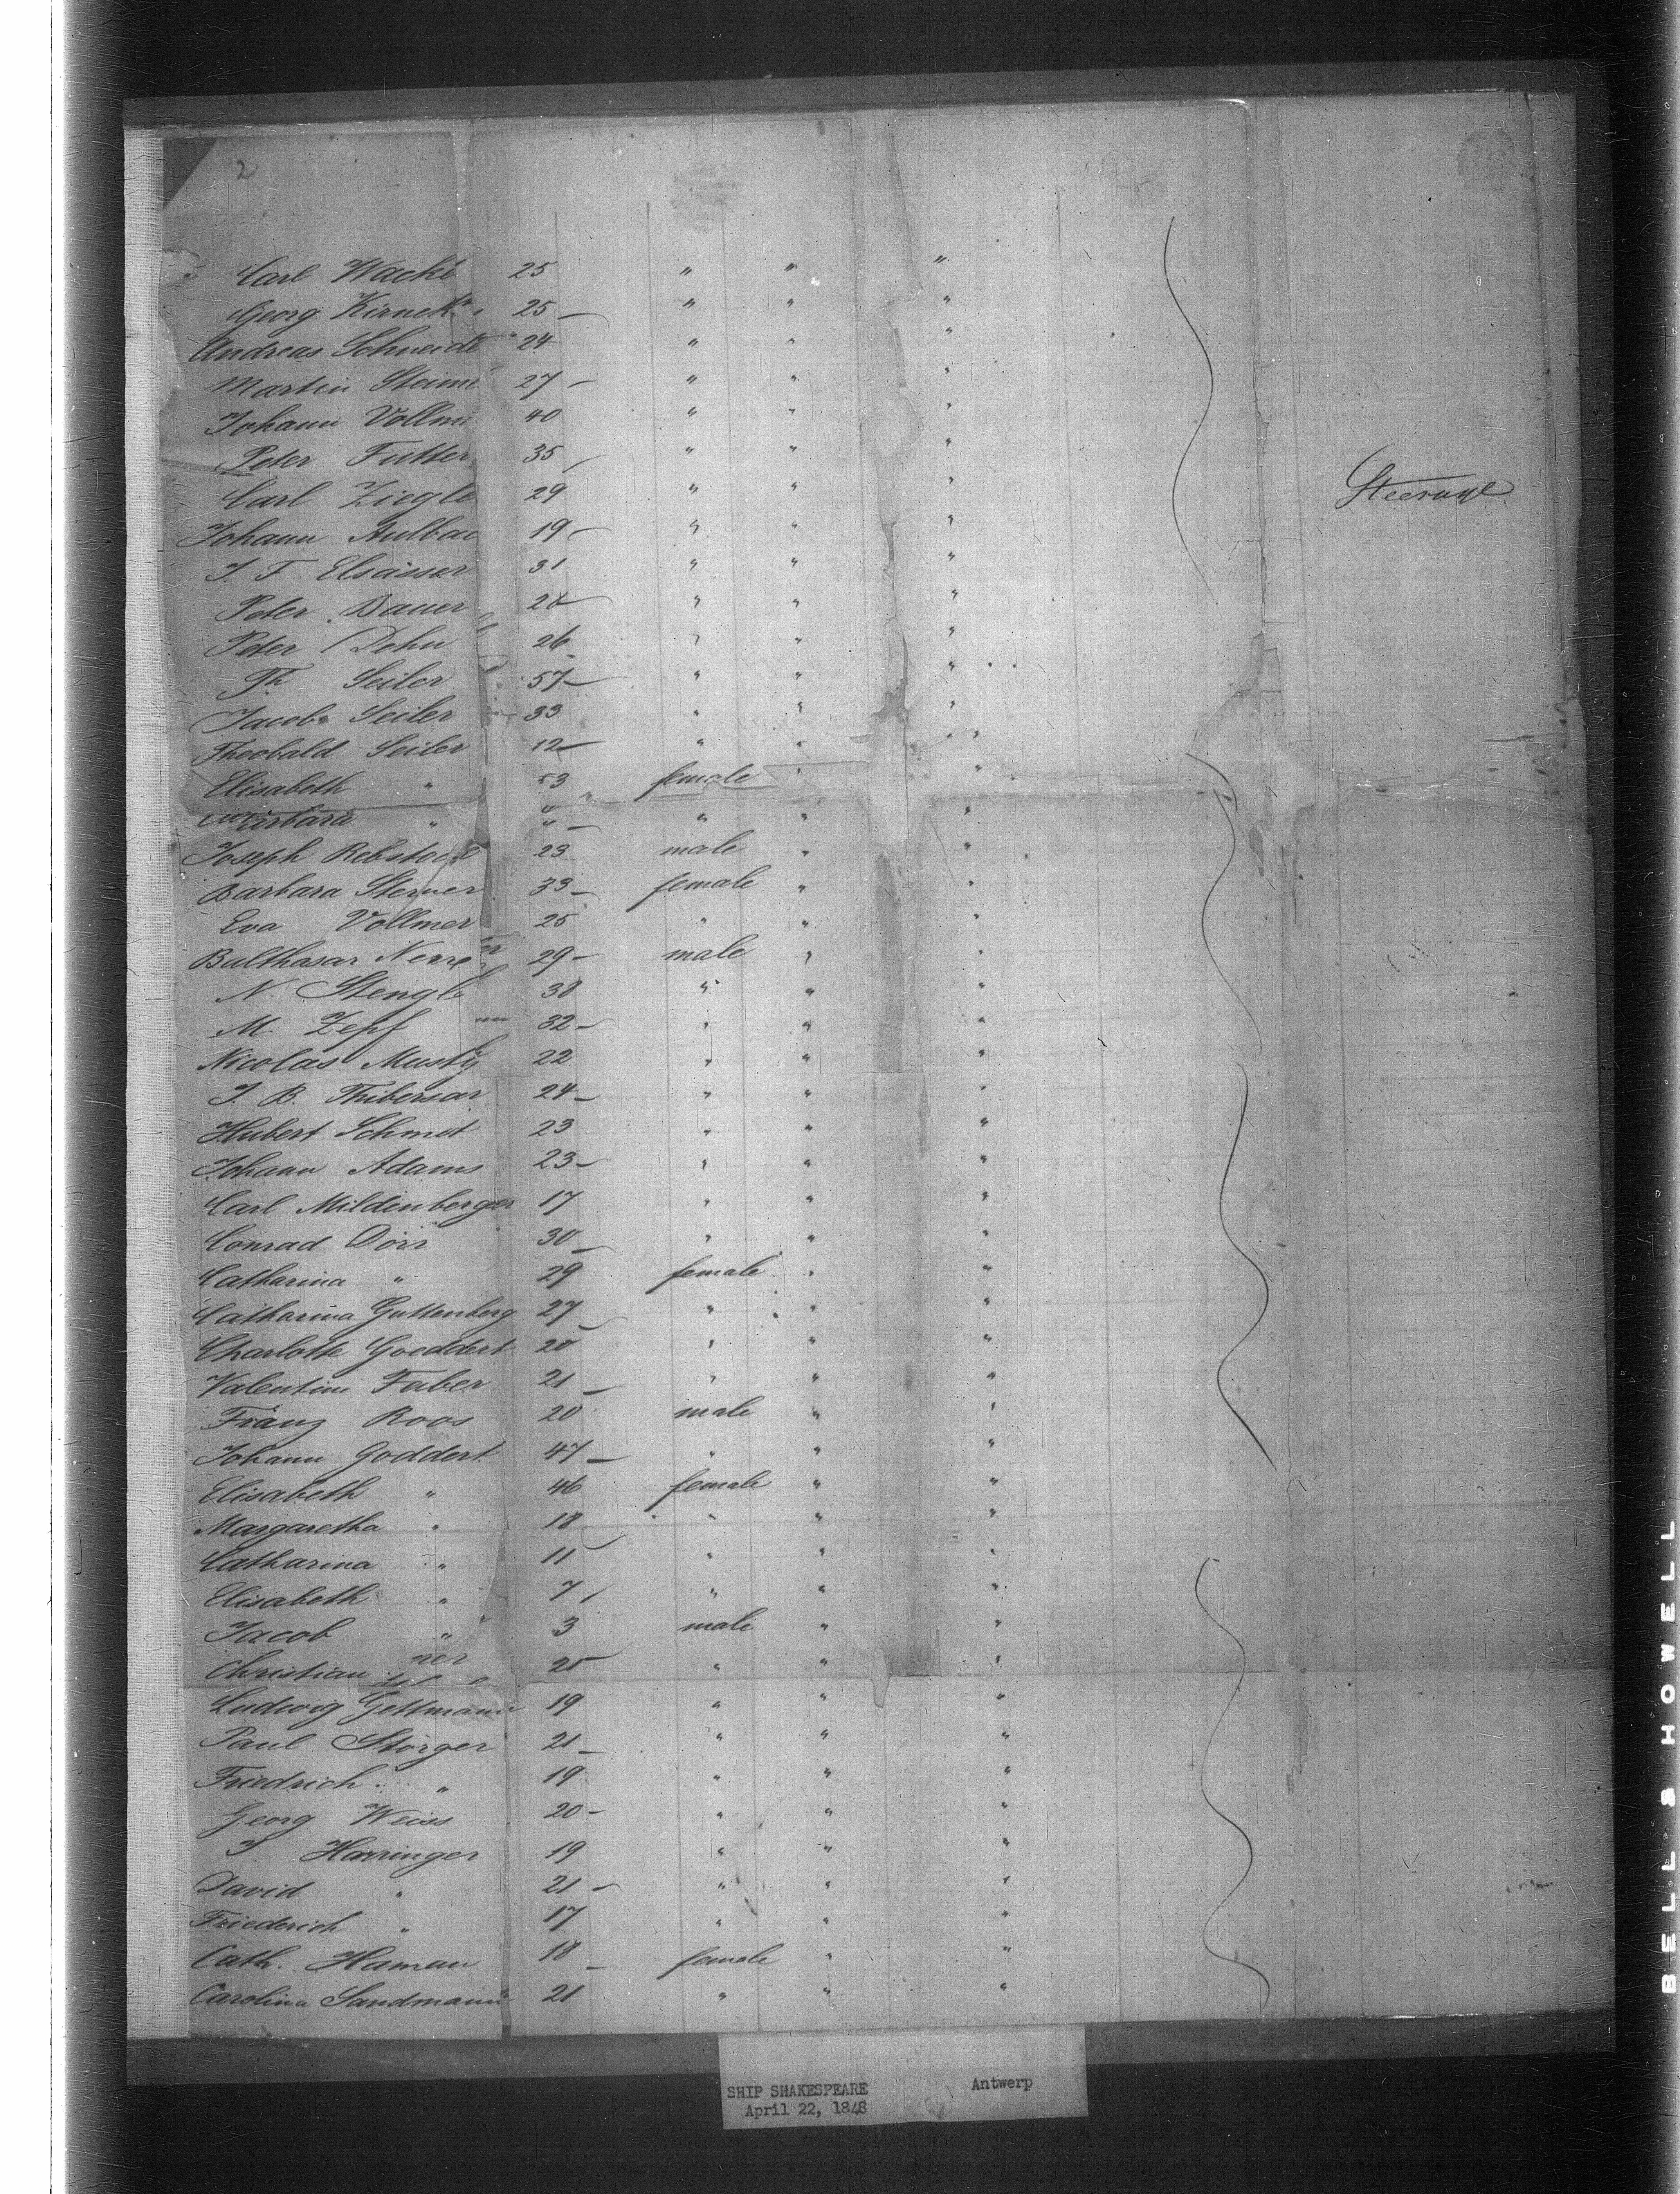 2
Carl Wacké 25 " " "
Georg Kirnet 25 — " " "
Andreas Schneide 24 " " "
Martin Steim 27 — " " "
Johann Vollm 40 " " "
Peter Futter 35 " " "
Carl Ziegle 29 " " "
Steerage
Johann Aulbac 19 — " " "
J. F. Elsässer 31 " " "
Peter Bauer 28 — " " "
Peter Dehn 26 " " "
Th Seiler 57 — " " "
Jacob Seiler 33 " " "
Theobald Seiler 12 — " " "
Elisabeth " 53 female " "
Barbara " " — " " "
Joseph Rebstock 23 male " "
Barbara Sterner 33 — female " "
Eva Vollmer 25 " " "
Balthasar 29 — male " "
N. Stengl 38 " " "
M. Zepf 32 — " " "
Nicolas Musty 22 " " "
J. B. Thibersar 24 — " " "
Hubert Schmit 23 " " "
Johann Adams 23 — " " "
Carl Mildenberger 17 " " "
Conrad Dörr 30 — " " "
Catharina " 29 female " "
Catharina Guttenberg 27 — " " "
Charlotte Goeddert 20 " " "
Valentin Faber 21 — " " "
Franz Roos 20 male " "
Johann Goddert 47 — " " "
Elisabeth " 46 female " "
Margaretha " 18 " " "
Catharina " 11 " " "
Elisabeth " 7 " " "
Jacob " 3 male " "
Christian ner 25 " " "
Ludwig Gettmann 19 " " "
Paul Störger 21 — " " "
Friedrich " 19 " " "
Georg Weiss 20 — " " "
J. Harringer 19 " " "
David " 21 — " " "
Friederich " 17 " " "
Cath. Haman 18 — female " "
Carolina Sandmann 21 " " "
SHIP SHAKESPEARE Antwerp
April 22, 1848
BELL & HOWELL